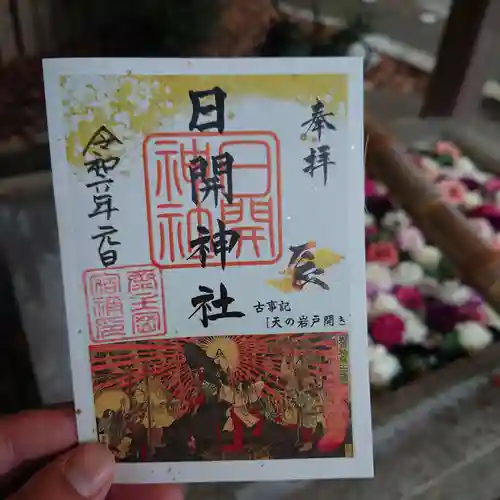 奉拝
辰
日開神社
令和六年元日
古事記
「天の岩戸開き